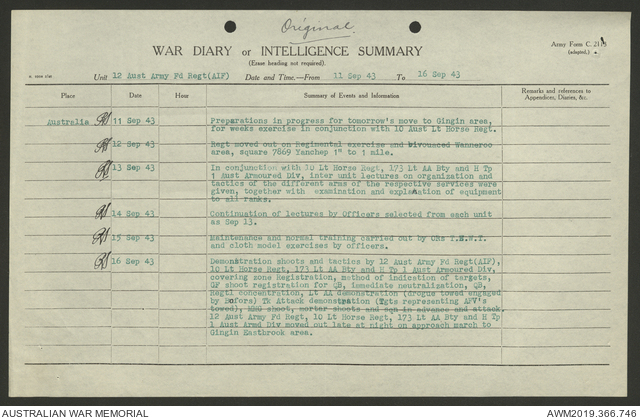 Original.
WAR DIARY or INTELLIGENCE SUMMARY
(Erase heading not required).
Army Form C. 2118
(adapted.)
Unit 12 Aust Army Fd Regt(AIF) Date and Time.—From 11 Sep 43 To 16 Sep 43
Place Date Hour Summary of Events and Information Remarks and references to
Appendices, Diaries, &c.
Australia 11 Sep 43 Preparations in progress for tomorrow's move to Gingin area,
for weeks exercise in conjunction with 10 Aust Lt Horse Regt.
12 Sep 43 Regt moved out on Regimental exercise and bivouaced Wanneroo
area, square 7869 Yanchep 1" to 1 mile.
13 Sep 43 In conjunction with 10 Lt Horse Regt, 173 Lt AA Bty and H Tp
1 Aust Armoured Div, inter unit lectures on organization and
tactics of the different arms of the respective services were
given, together with examination and explanation of equipment
to all ranks.
14 Sep 43 Continuation of lectures by Officers selected from each unit
as Sep 13.
15 Sep 43 Maintenance and normal training carried out by ORs T.E.W.T.
and cloth model exercises by officers.
16 Sep 43 Demonstration shoots and tactics by 12 Aust Army Fd Regt(AIF),
10 Lt Horse Regt, 173 Lt AA Bty and H Tp 1 Aust Armoured Div,
covering zone Registration, method of indication of targets,
QF shoot registration for QB, immediate neutralization, QB,
Regtl concentration, Lt AA demonstration (drogue towed engaged
by Bofors) Tk Attack demonstration (Tgts representing AFV's
towed), MMG shoot, mortar shoots and sqn in advance and attack.
12 Army Fd Regt, 10 Lt Horse Regt, 173 Lt AA Bty and H Tp
1 Aust Armd Div moved out late at night on approach march to
Gingin Eastbrook area.
AUSTRALIAN WAR MEMORIAL AWM2019.366.746